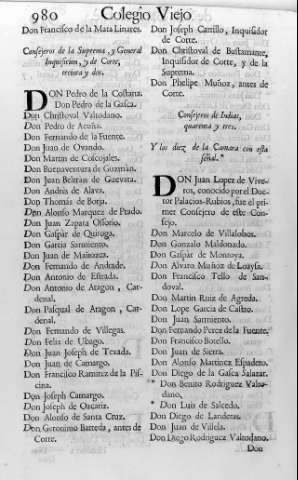 980 Colegio Viejo
Don Francisco de la Mata Linares.
Consejeros de la Suprema, y General
Inquisicion, y de Corte,
treinta y dos.
DON Pedro de la Costana.
Don Pedro de la Gasca.
Don Christoval Valtodano.
Don Pedro de Acuña.
Don Fernando de la Fuente.
Don Juan de Ovando.
Don Martin de Coscojales.
Don Buenaventura de Guzmán.
Don Juan Beltran de Guevara.
Don Andrés de Alava.
Don Thomás de Borja.
Don Alonso Marquez de Prado.
Don Juan Zapata Ossorio.
Don Gaspár de Quiroga.
Don Garcia Sarmiento.
Don Juan de Mañozca.
Don Fernando de Andrade.
Don Antonio de Estrada.
Don Antonio de Aragon, Car-
denal.
Don Pasqual de Aragon, Car-
denal.
Don Fernando de Villegas.
Don Felix de Ubago.
Don Juan Joseph de Texada.
Don Juan de Camargo.
Don Francisco Ramirez de la Pis-
cina.
Don Joseph Camargo.
Don Joseph de Oscariz.
Don Alonso de Santa Cruz.
Don Geronimo Barreda, antes de
Corte.
Don Joseph Carrillo, Inquisidor
de Corte.
Don Christoval de Bustamante,
Inquisidor de Corte, y de la
Suprema.
Don Phelipe Muñoz, antes de
Corte.
Consejeros de Indias,
quarenta y tres.
Y los diez de la Camara con esta
señal.*
DON Juan Lopez de Vive-
ros, conocido por el Doc-
tor Palacios-Rubios, fue el pri-
mer Consejero de este Con-
sejo.
Don Marcelo de Villalobos.
Don Gonzalo Maldonado.
Don Gaspár de Montoya.
Don Alvaro Muñoz de Loaysa.
Don Francisco Tello de San-
doval.
Don Martin Ruiz de Agreda.
Don Lope Garcia de Castro.
Don Juan Sarmiento.
Don Fernando Perez de la Fuente.
Don Francisco Botello.
Don Juan de Sierra.
Don Alonso Martinez Espadero.
Don Diego de la Gasca Salazar.
* Don Benito Rodriguez Valto-
dano.
* Don Luis de Salcedo.
Don Diego de Landeras.
Don Juan de Villela.
Don Diego Rodriguez Valtodano.
Don